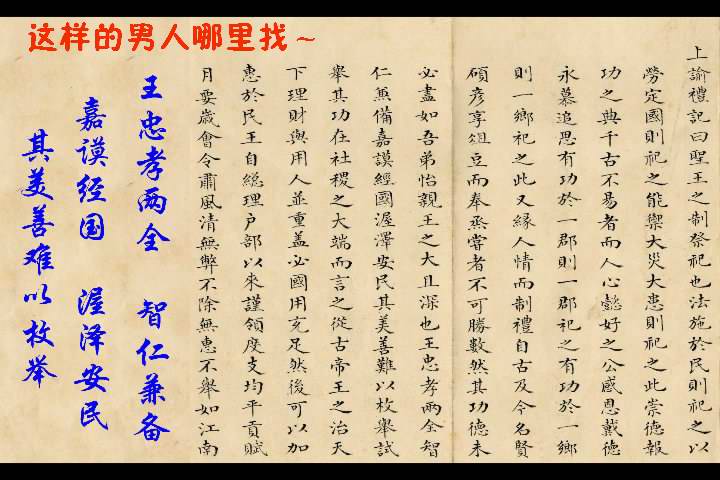 这样的男人哪里找～
上諭禮記曰聖王之制祭祀也法施於民則祀之以
勞定國則祀之能禦大災大患則祀之此崇德報
功之典千古不易者而人心懿好之公感恩戴德
永慕追思有功於一郡則一郡祀之有功於一鄉
則一鄉祀之此又緣人情而制禮自古及今名賢
碩彥享俎豆而奉烝嘗者不可勝數然其功德未
必盡如吾弟怡親王之大且深也王忠孝兩全智
仁兼備嘉謨經國渥澤安民其美善難以枚舉試
舉其功在社稷之大端而言之從古帝王之治天
下理財與用人並重蓋必國用充足然後可以加
惠於民王自總理戶部以來謹領度支均平貢賦
月要歲會令肅風清無弊不除無惠不舉如江南
王忠孝两全 智仁兼备
嘉谟经国 渥泽安民
其美善难以枚举